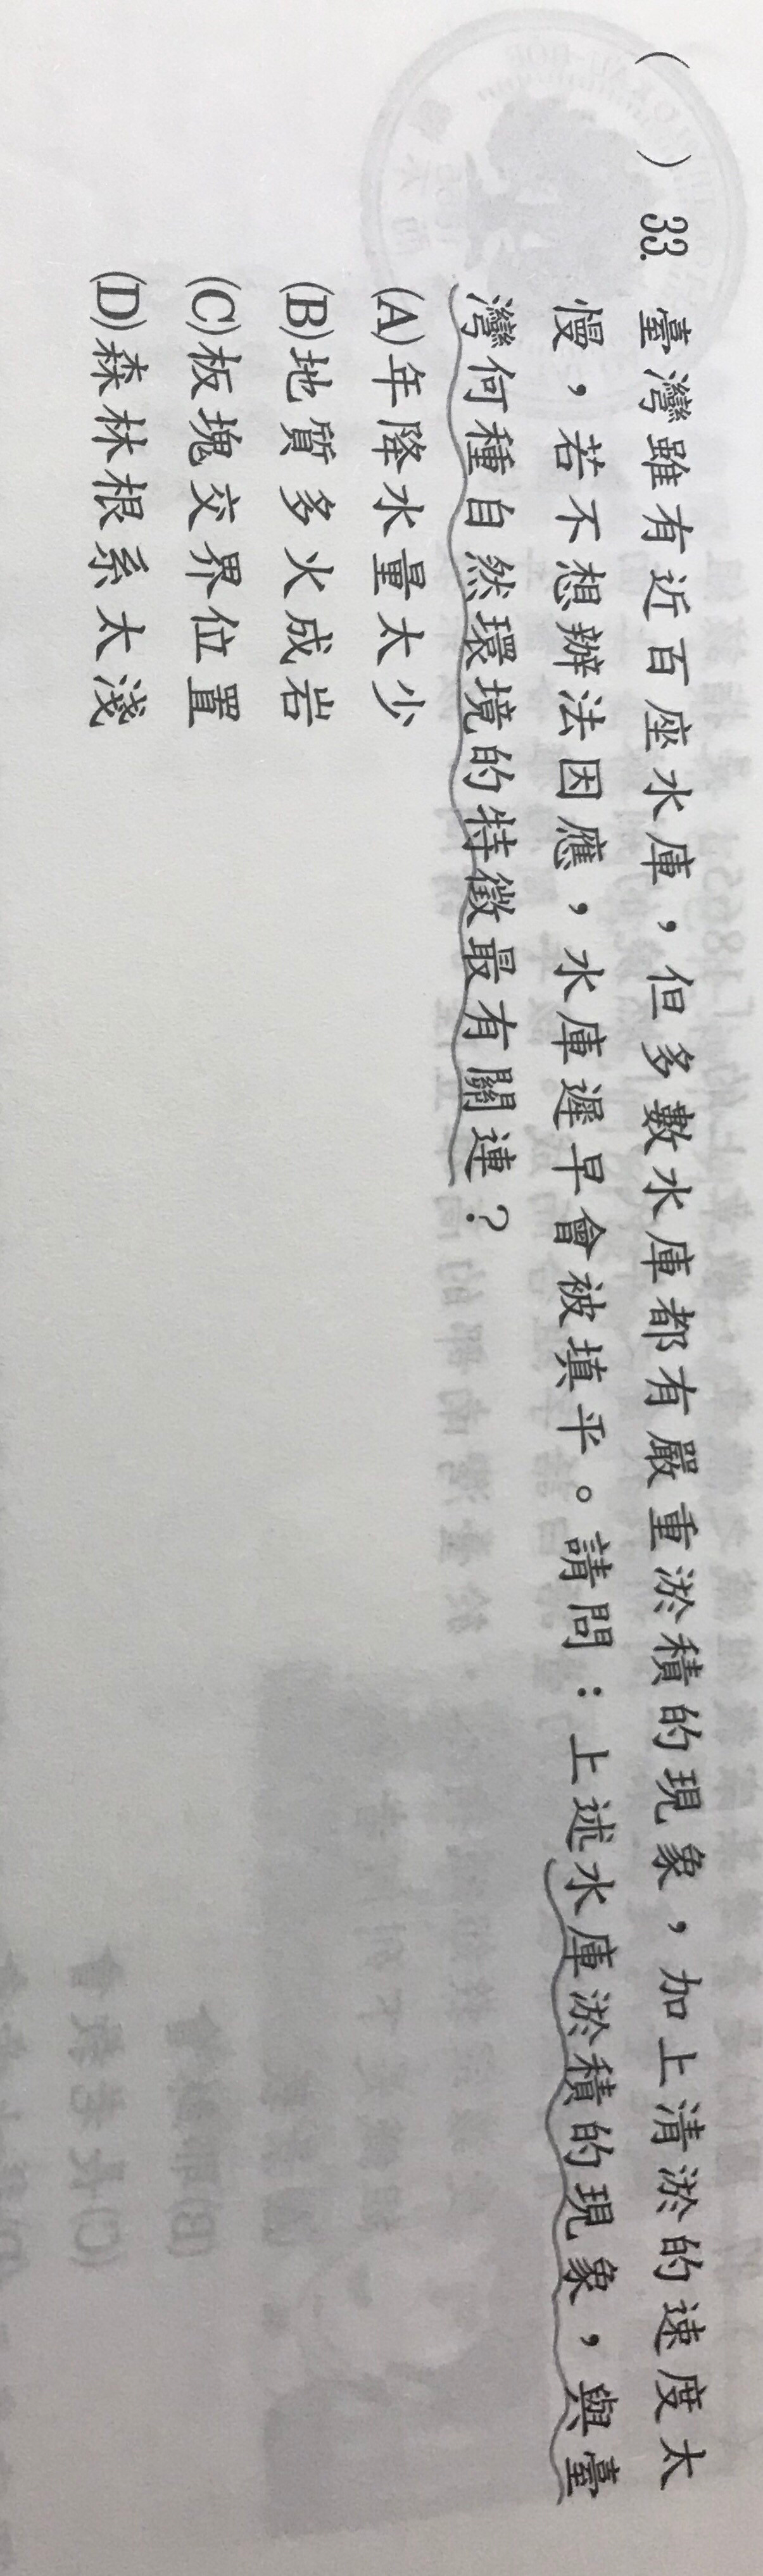 (　) 33. 臺灣雖有近百座水庫，但多數水庫都有嚴重淤積的現象，加上清淤的速度太
慢，若不想辦法因應，水庫遲早會被填平。請問：上述水庫淤積的現象，與臺
灣何種自然環境的特徵最有關連？
(A)年降水量太少
(B)地質多火成岩
(C)板塊交界位置
(D)森林根系太淺